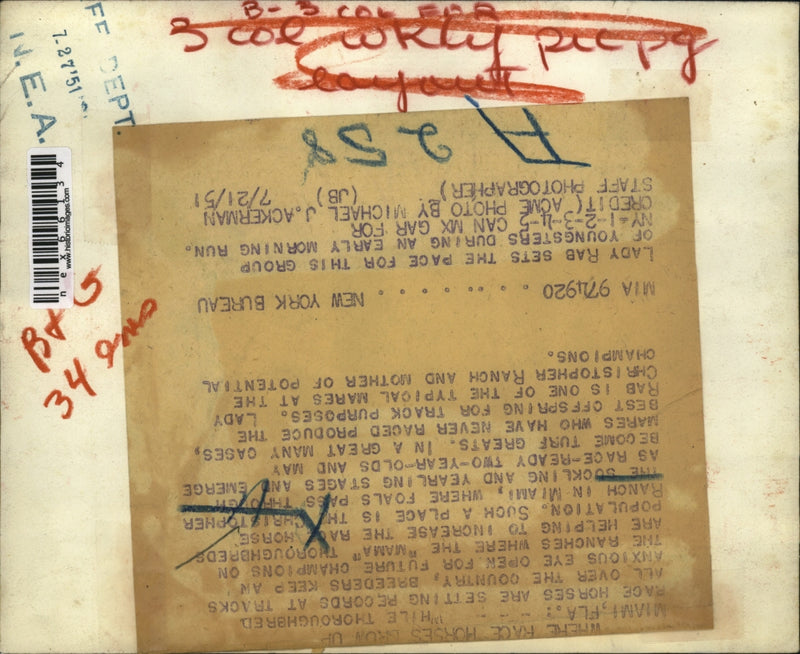 B-3 COL FOR
3 col wkly pic pg
layout
FF DEPT.
7-27'51
N.E.A.
neX66134
www.historicimages.com
B+G
34
WHERE RACE HORSES GROW UP
MIAMI, FLA.: - - - - WHILE THOROUGHBRED
RACE HORSES ARE SETTING RECORDS AT TRACKS
ALL OVER THE COUNTRY, BREEDERS KEEP AN
ANXIOUS EYE OPEN FOR FUTURE CHAMPIONS ON
THE RANCHES WHERE THE "MAMA" THOROUGHBREDS
ARE HELPING TO INCREASE THE RACE HORSE
POPULATION. SUCH A PLACE IS THE CHRISTOPHER
RANCH IN MIAMI, WHERE FOALS PASS THROUGH
THE SUCKLING AND YEARLING STAGES AND EMERGE
AS RACE-READY TWO-YEAR-OLDS AND MAY
BECOME TURF GREATS. IN A GREAT MANY CASES,
MARES WHO HAVE NEVER RACED PRODUCE THE
BEST OFFSPRING FOR TRACK PURPOSES. LADY
RAB IS ONE OF THE TYPICAL MARES AT THE
CHRISTOPHER RANCH AND MOTHER OF POTENTIAL
CHAMPIONS.
MIA 974920 . . . . . . . . NEW YORK BUREAU
LADY RAB SETS THE PACE FOR THIS GROUP
OF YOUNGSTERS DURING AN EARLY MORNING RUN.
NY=1-2-3-4-5 CAN MX GAR FOR
CREDIT( ACME PHOTO BY MICHAEL J.ACKERMAN
STAFF PHOTOGRAPHER) (JB) 7/21/51
A 252